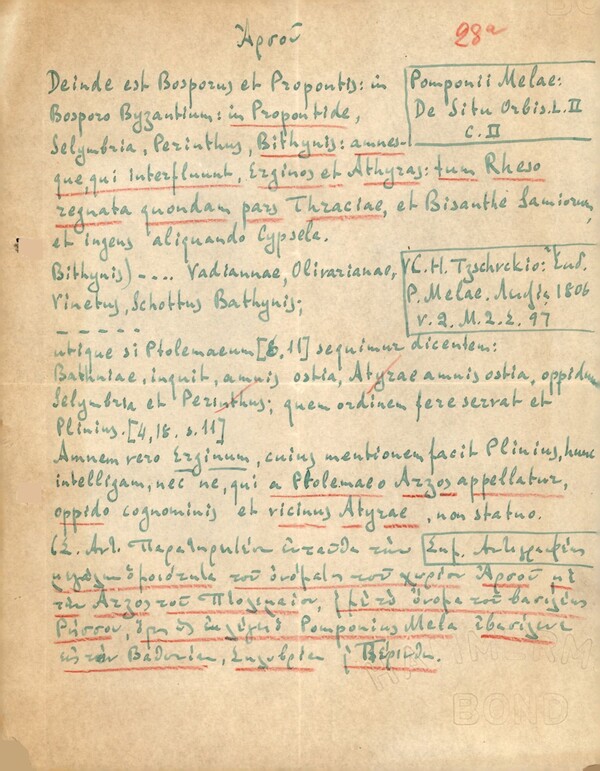 Ἀρσοῦ
28α
Deinde est Bosporus et Propontis: in
Bosporo Byzantium: in Propontide,
Selymbria, Perinthus, Bithynis: amnes-
que, qui interfluunt, Erginos et Athyras: tum Rheso
regnata quondam pars Thraciae, et Bisanthe Samiorum,
et ingens aliquando Cypsela.
Pomponii Melae:
De Situ Orbis. L. II
C. II
Bithynis) - .... Vadiannae, Olivarianae,
Vinetus, Schottus Bathynis;
C. H. Tzschrckio: Ἔκδ.
P. Melae. Λειψία 1806
v. 2. Μ. 2. Σ. 97
- - - - -
utique si Ptolemaeum [6, 11] sequimur dicentem:
Bathniae, inquit, amnis ostia, Atyrae amnis ostia, oppidum
Selymbria et Perinthus; quem ordinem fere servat et
Plinius. [4, 18. s. 11]
Amnem vero Erginum, cuius mentionem facit Plinius, hunc
intelligam, nec ne, qui a Ptolemaeo Arzos appellatur,
oppido cognominis et vicinus Atyrae, non statuo.
(Σ. Ἀντ. Παρατηρητέον ἐνταῦθα τὴν
Σημ. Ἀντιγραφέως
μεγάλην ὁμοιότητα τοῦ ὀνόματος τοῦ χωρίου Ἀρσοῦ μὲ
τὴν Arzos τοῦ Πτολεμαίου, ἢ μὲ τὸ ὄνομα τοῦ βασιλέως
Ρήσσου, Pomponius Mela ἐβασίλευε
εἰς τὴν Βαθυνίαν, Σηλυβρίαν ἢ Πέρινθον.
BOND